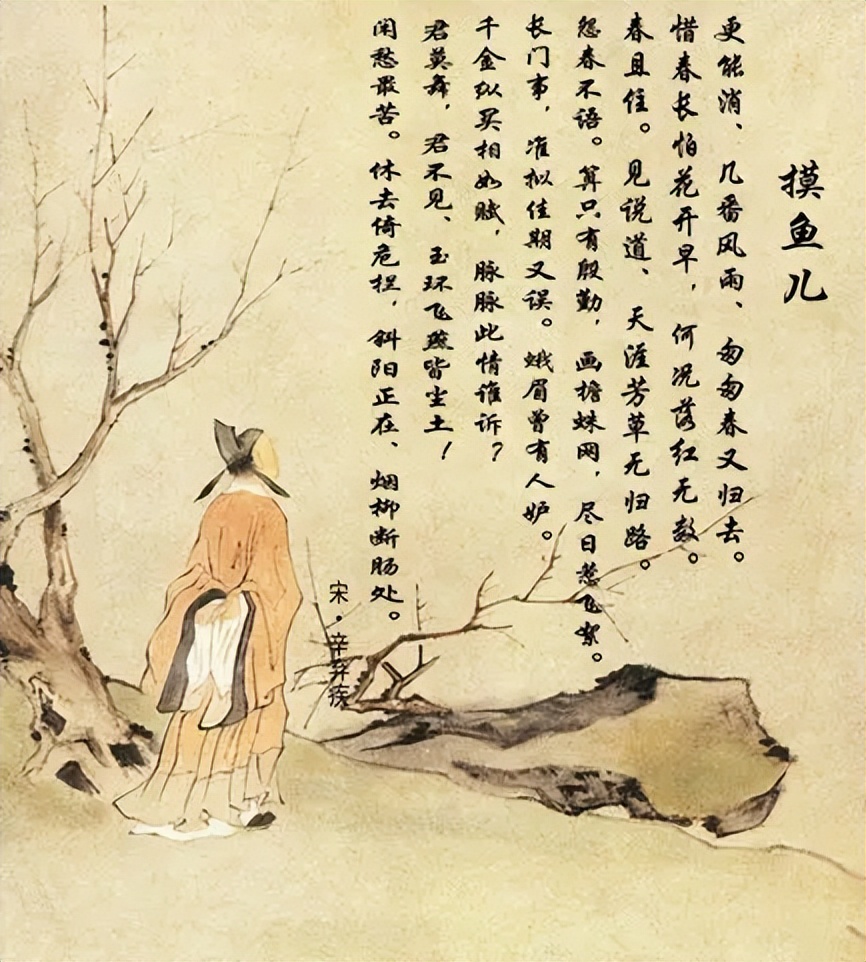 摸鱼儿
更能消、几番风雨、匆匆春又归去。
惜春长怕花开早，何况落红无数。
春且住。见说道、天涯芳草无归路。
怨春不语。算只有殷勤，画檐蛛网，尽日惹飞絮。
长门事，准拟佳期又误。蛾眉曾有人妒。
千金纵买相如赋，脉脉此情谁诉？
君莫舞，君不见、玉环飞燕皆尘土！
闲愁最苦。休去倚危栏，斜阳正在、烟柳断肠处。
宋·辛弃疾